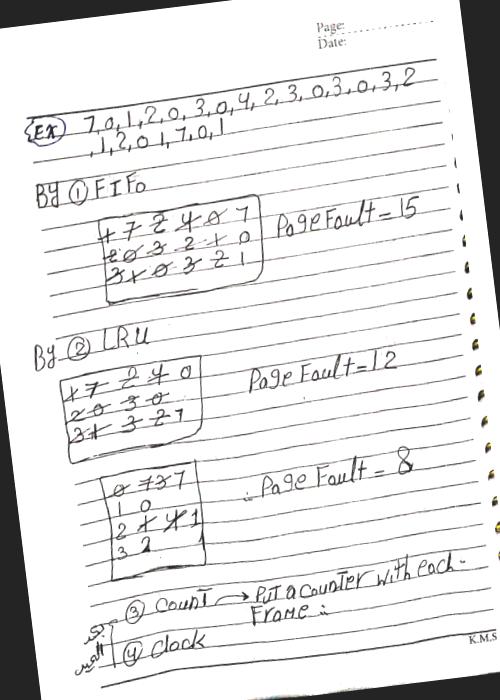 Page:
Date:
Ex 7,0,1,2,0,3,0,4,2,3,0,3,0,3,2
,1,2,0 1,7,0,1
By ① FIFo
7 2 4 0 7
0 3 2 1 0
1 0 3 2 1
Page Fault = 15
By ② LRU
7 2 4 0
0 3 0
1 3 2 1
Page Fault = 12
0 7 3 7
1 0
2 4 1
3 2
∴ Page Fault = 8
③ Count → Put a counter with each
Frame
④ Clock
K.M.S